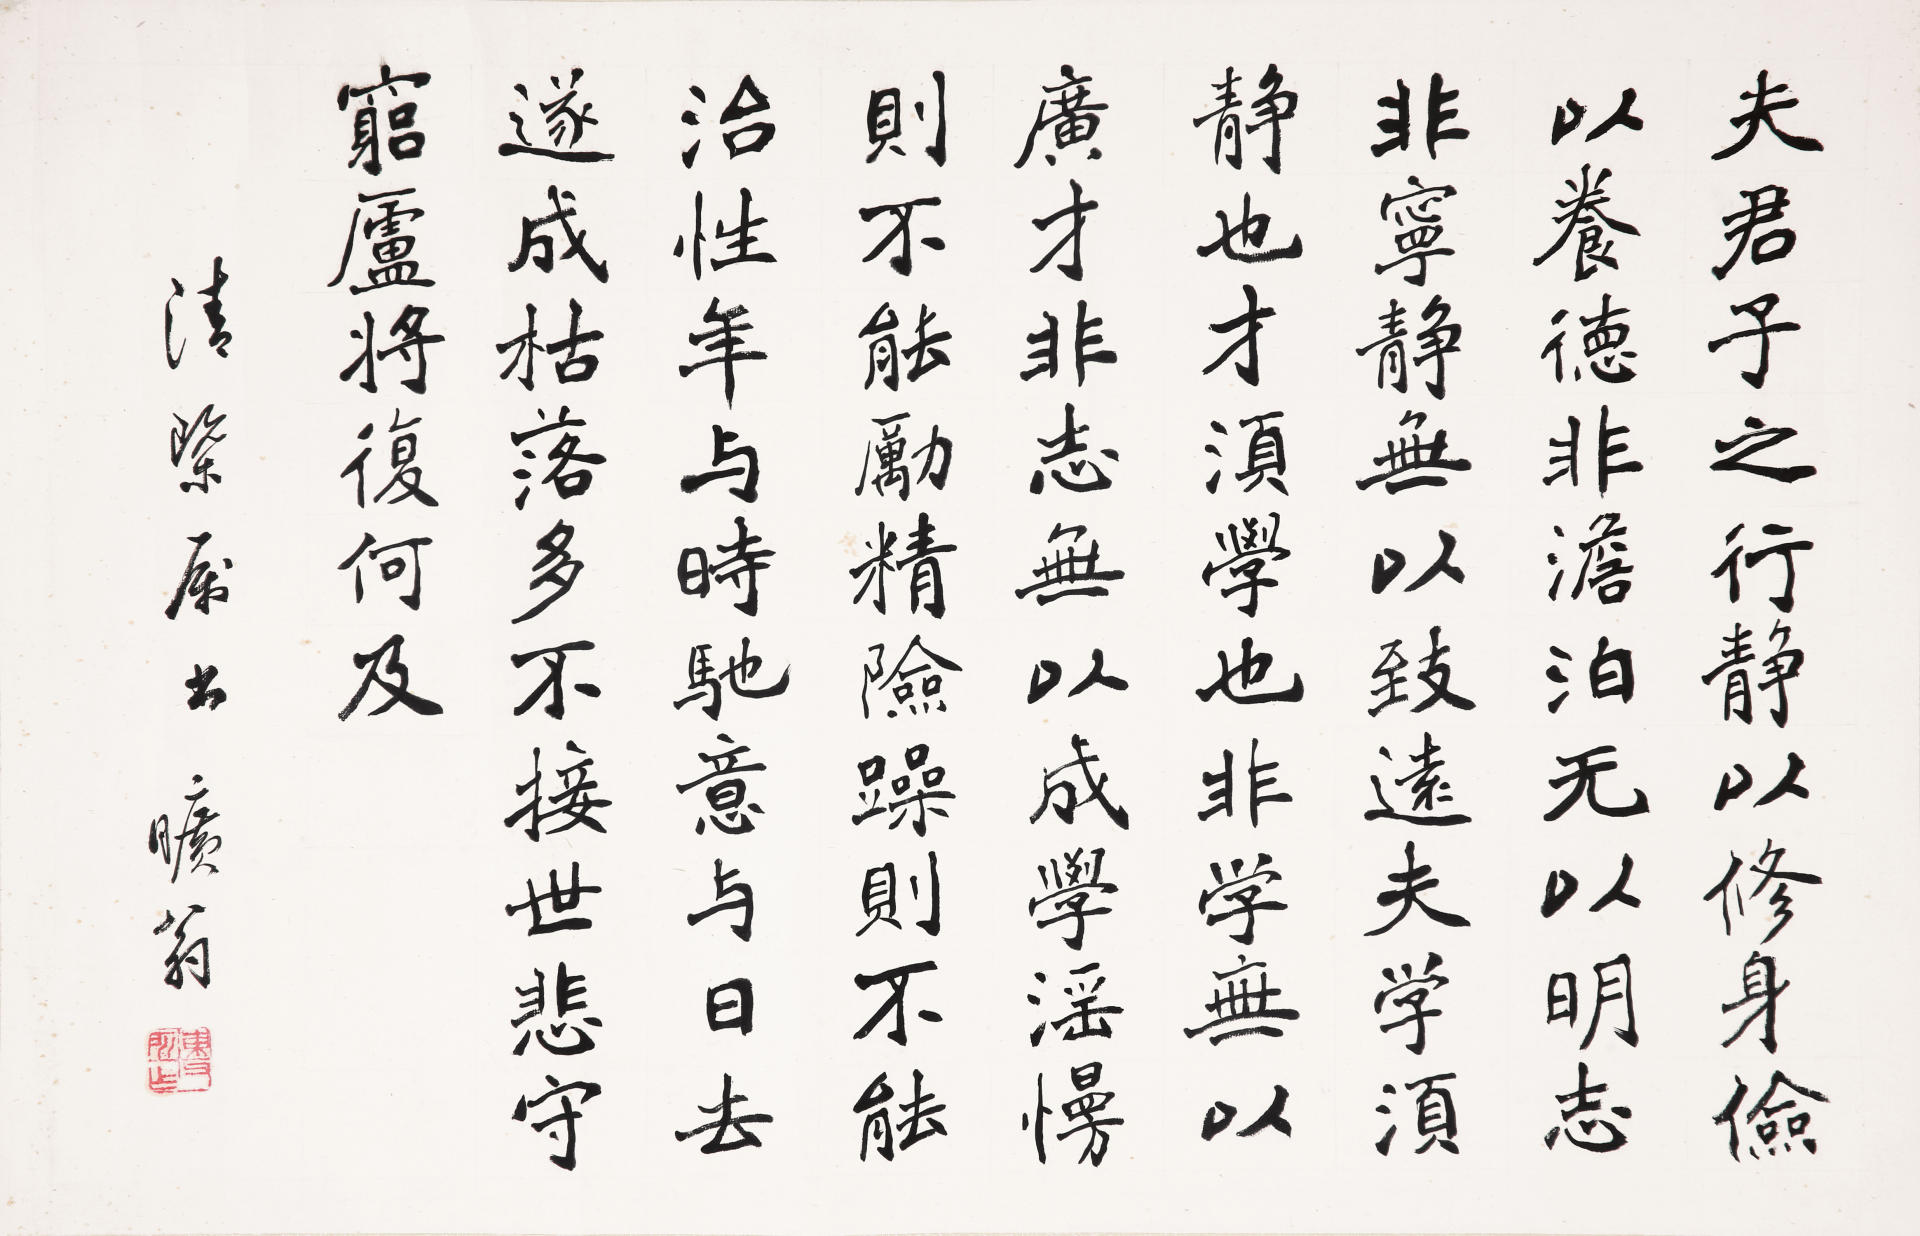 夫君子之行静以修身儉
以養德非澹泊无以明志
非寧静無以致遠夫学須
静也才須學也非学無以
廣才非志無以成學淫慢
則不能勵精險躁則不能
治性年与時馳意与日去
遂成枯落多不接世悲守
窮廬將復何及
清槩属书曠翁